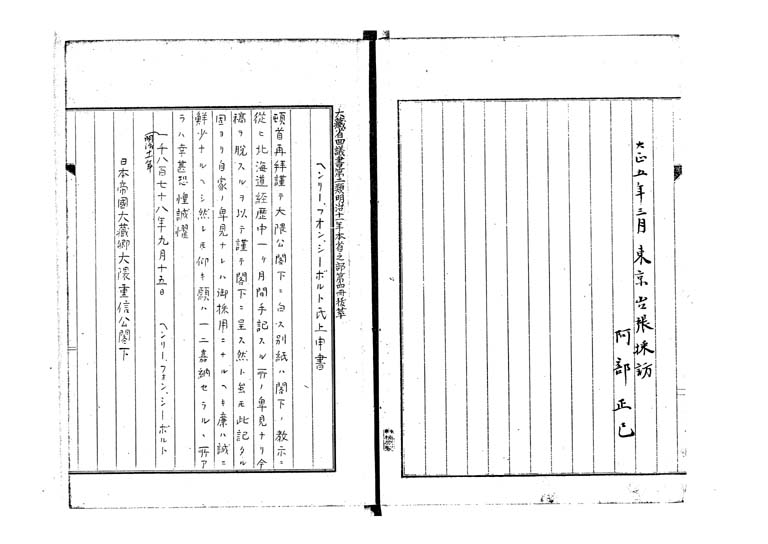 大正五年三月東京出張採訪
阿部正己
大藏省四議書第二類明治十一年本省之部第四冊抜萃
ヘンリー、フオン、シーボルト氏上申書
頓首再拜謹テ大隈公閣下ニ白ス別紙ハ閣下ノ教示ニ
從ヒ北海道経歴中一ヶ月間手記スル所ノ卑見ナリ今
稿ヲ脱スルヲ以テ謹テ閣下ニ呈ス然ト雖モ此記タル
固ヨリ自家ノ卑見ナレハ御採用ニナルヘキ廉ハ誠ニ
鮮少ナルヘシ然レ𪜈仰キ願ハ一二嘉納セラルヽ所ア
ラハ幸甚恐惶誠懼
一千八百七十八年九月十五日 ヘンリー、フォン、シーボルト
(明治十一年)
日本帝國大藏卿大隈重信公閣下